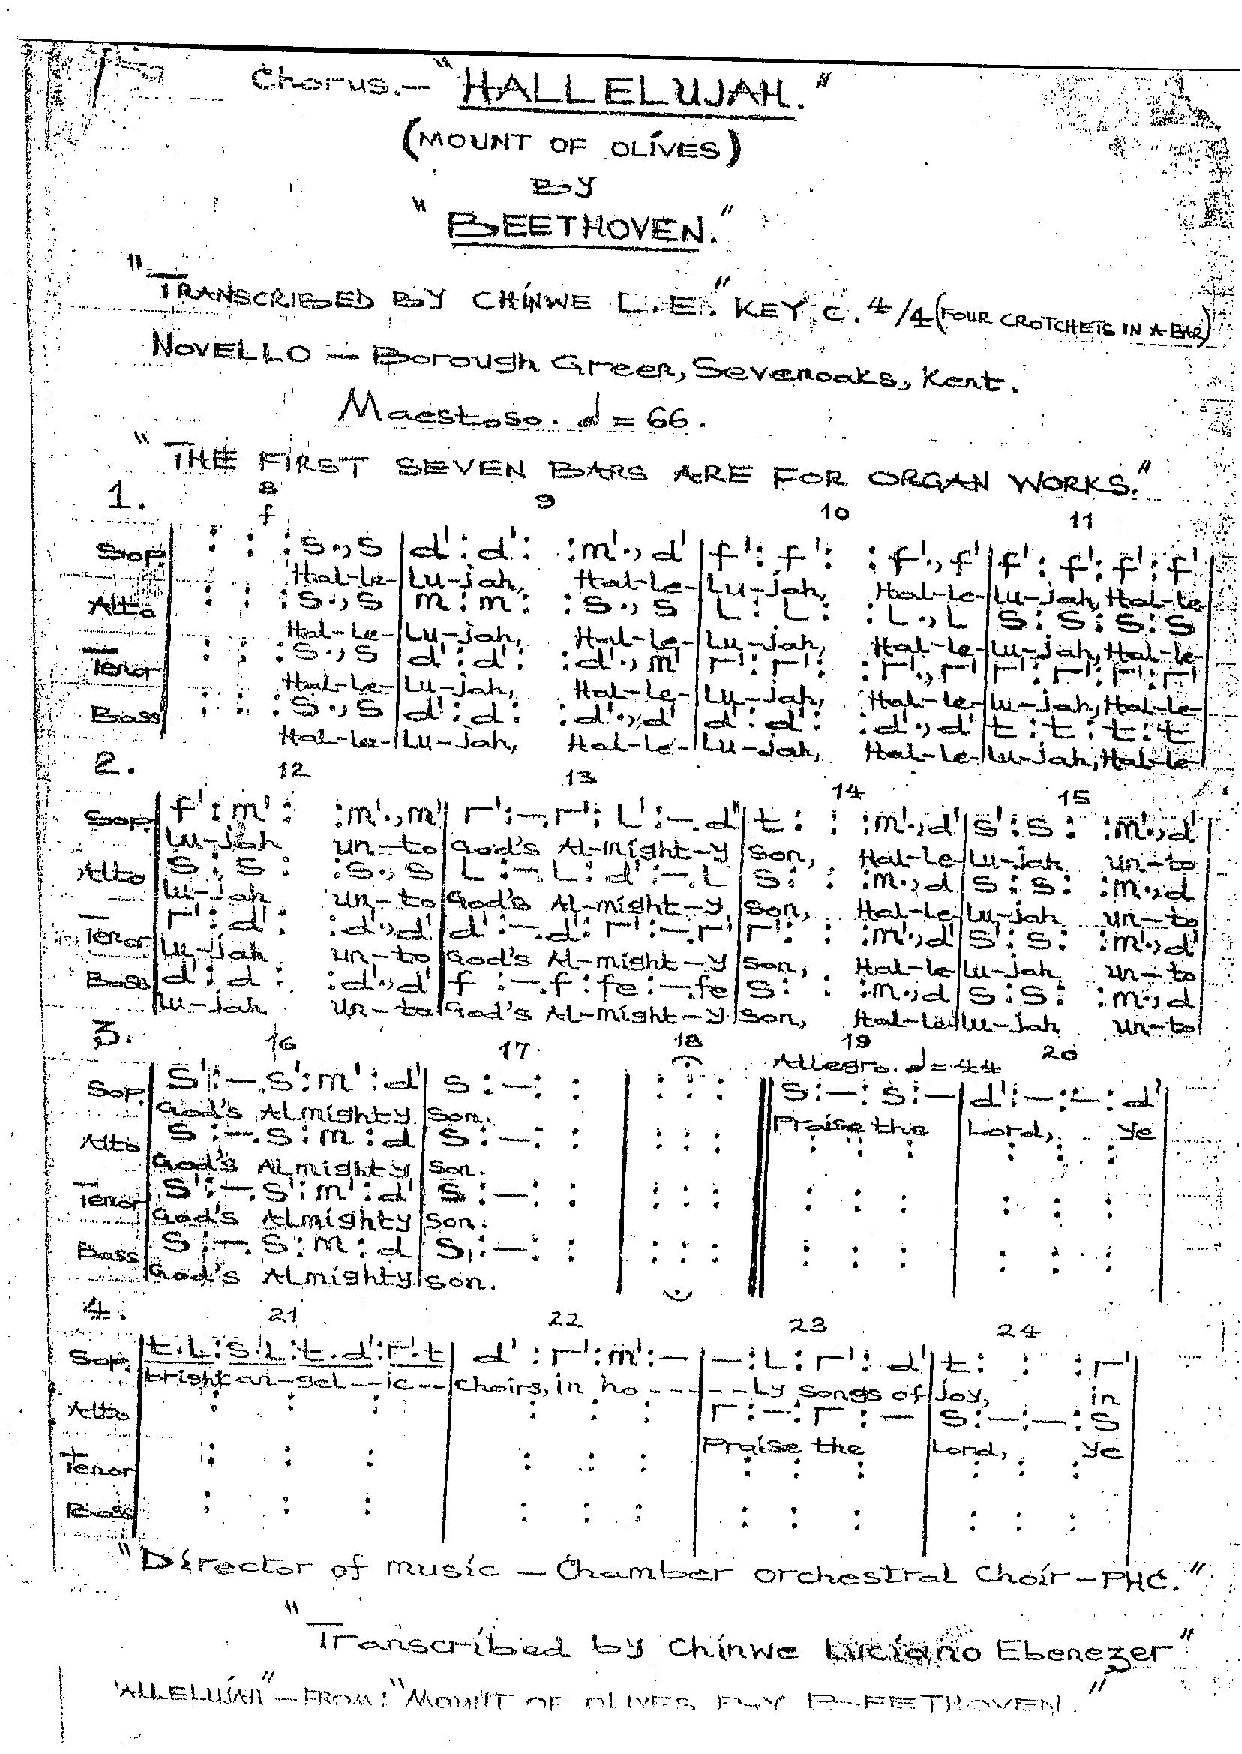 Chorus.— "HALLELUJAH."
(MOUNT OF OLIVES)
BY
"BEETHOVEN."
"TRANSCRIBED BY CHINWE L.E." KEY C. 4/4 (FOUR CROTCHETS IN A BAR)
NOVELLO — Borough Green, Sevenoaks, Kent.
Maestoso. d = 66.
"THE FIRST SEVEN BARS ARE FOR ORGAN WORKS."
1. 8 9 10 11
f
Sop. : : :s.,s|d':d': :m'.,d'|f':f': :f'.,f'|f':f':f':f'
Hal-le-|Lu-jah, Hal-le-|Lu-jah, Hal-le-|Lu-jah, Hal-le-
Alto : : :s.,s|m:m: :s.,s|L:L: :L.,L|s:s:s:s
Hal-le-|Lu-jah, Hal-le-|Lu-jah, Hal-le-|Lu-jah, Hal-le-
Tenor : : :s.,s|d':d': :d'.,m'|r':r': :r'.,r'|r':r':r':r'
Hal-le-|Lu-jah, Hal-le-|Lu-jah, Hal-le-|Lu-jah, Hal-le-
Bass : : :s.,s|d':d': :d'.,d'|d':d': :d'.,d'|t:t:t:t
Hal-le-|Lu-jah, Hal-le-|Lu-jah, Hal-le-|Lu-jah, Hal-le
2. 12 13 14 15
Sop. f':m': :m'.,m'|r':-.r':L':-.d'|t: : :m'.,d'|s':s': :m'.,d'
Lu-jah un-to|God's Al-might-y|Son, Hal-le|Lu-jah un-to
Alto s:s: :s.,s|L:-.L:d':-.L|s: : :m.,d|s:s: :m.,d
Lu-jah un-to|God's Al-might-y|Son, Hal-le|Lu-jah un-to
Tenor r':d': :d'.,d'|d':-.d':r':-.r'|r': : :m'.,d'|s':s': :m'.,d'
Lu-jah un-to|God's Al-might-y|Son, Hal-le|Lu-jah un-to
Bass d':d': :d'.,d'|f:-.f:fe:-.fe|s: : :m.,d|s:s: :m.,d
Lu-jah un-to|God's Al-might-y|Son, Hal-le|Lu-jah un-to
3. 16 17 18 19 20
Allegro. d = 44
Sop. s':-.s':m':d'|s:-: :| : : : ||s:-:s:-|d':-:-:d'
God's ALmighty|Son. Praise the|Lord, ye
Alto s:-.s:m:d|s:-: :| : : : || : : : | : : :
God's ALmighty|Son.
Tenor s':-.s':m':d'|s:-: :| : : : || : : : | : : :
God's ALmighty|Son.
Bass s:-.s:m:d|s,:-: :| : : : || : : : | : : :
God's ALmighty|Son.
4. 21 22 23 24
Sop. t.L:s.L:t.d':r'.t|d':r':m':-|-:L:r':d'|t: : :r'
bright an-gel--ic--|choirs, in ho-----|-Ly songs of|joy, in
Alto : : : | : : : |r:-:r:-|s:-:-:s
Praise the|Lord, ye
Tenor : : : | : : : | : : : | : : :
Bass : : : | : : : | : : : | : : :
"Director of music — Chamber orchestral Choir — PHC."
"Transcribed by Chinwe Luciano Ebenezer"
"ALLELUJAH" — FROM: "MOUNT OF OLIVES BY BEETHOVEN."